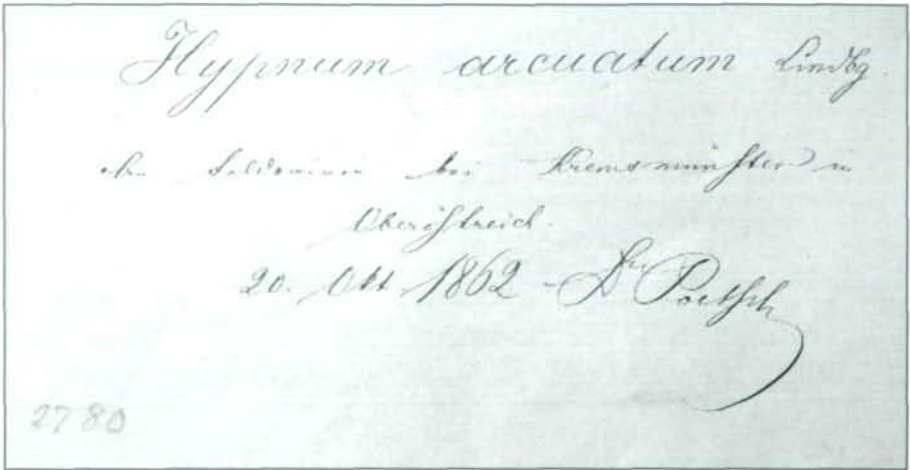 Hypnum arcuatum Lindbg.
An Feldrainen bei Kremsmünster in
Oberöstreich.
20. Okt. 1862 - Dr Poetsch
2780